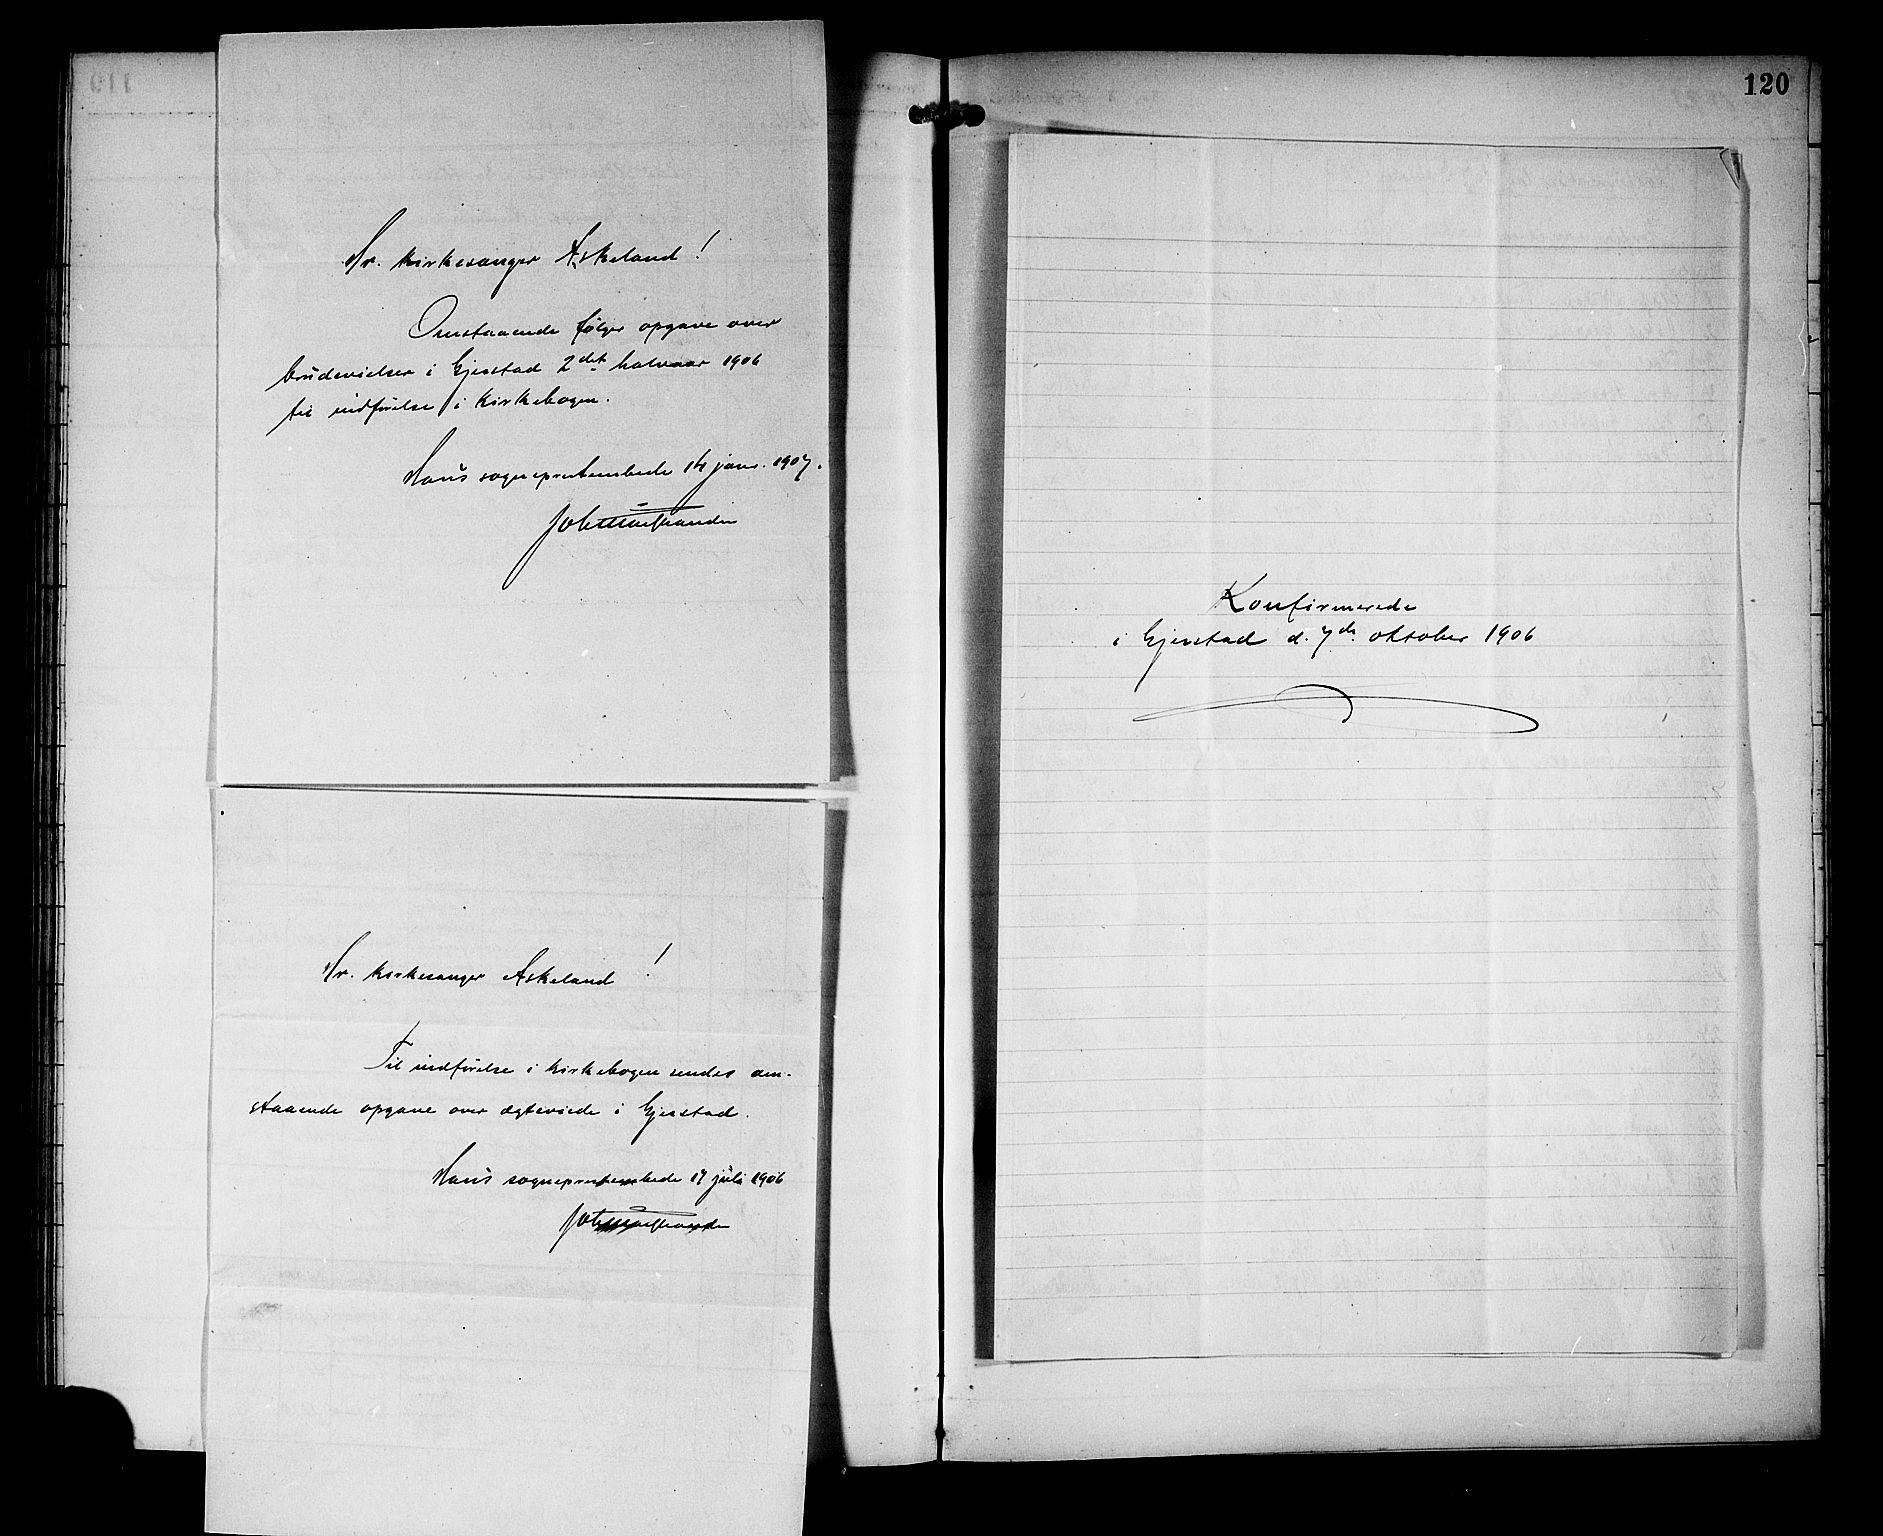 Hr. kirkesanger Askeland!
Omstaaende følger opgave over
brudevielser i Gjerstad 2det halvaar 1906
til indførelse i kirkebogen.
Haus sogneprestembede 14 janr. 1907.
Hr. kirkesanger Askeland!
Til indførelse i kirkebogen sendes om-
staaende opgave over ægteviede i Gjerstad.
Haus sogneprestembede 17 juli 1906
120
Konfirmerede
i Gjerstad d. 7de oktober 1906